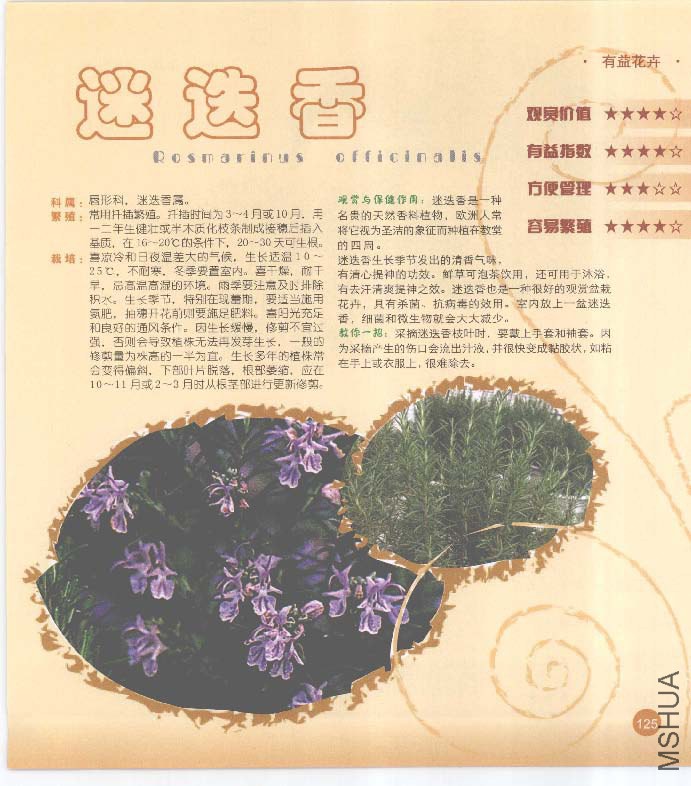 · 有益花卉 ·
迷迭香
Rosmarinus officinalis
观赏价值 ★★★★☆
有益指数 ★★★★☆
方便管理 ★★★☆☆
容易繁殖 ★★★★☆
科属：唇形科，迷迭香属。
繁殖：常用扦插繁殖。扦插时间为3～4月或10月，用
一二年生健壮或半木质化枝条制成接穗后插入
基质，在16～20℃的条件下，20～30天可生根。
栽培：喜凉冷和日夜温差大的气候，生长适温10～
25℃，不耐寒，冬季要置室内。喜干燥，耐干
旱，忌高温高湿的环境。雨季要注意及时排除
积水。生长季节，特别在现蕾期，要适当施用
氮肥，抽穗开花前则要施足肥料。喜阳光充足
和良好的通风条件。因生长缓慢，修剪不宜过
强，否则会导致植株无法再发芽生长，一般的
修剪量为株高的一半为宜。生长多年的植株常
会变得偏斜，下部叶片脱落，根部萎缩，应在
10～11月或2～3月时从根茎部进行更新修剪。
观赏与保健作用：迷迭香是一种
名贵的天然香料植物，欧洲人常
将它视为圣洁的象征而种植在教堂
的四周。
迷迭香生长季节发出的清香气味，
有清心提神的功效。鲜草可泡茶饮用，还可用于沐浴，
有去汗清爽提神之效。迷迭香也是一种很好的观赏盆栽
花卉，具有杀菌、抗病毒的效用。室内放上一盆迷迭
香，细菌和微生物就会大大减少。
教你一招：采摘迷迭香枝叶时，要戴上手套和袖套。因
为采摘产生的伤口会流出汁液，并很快变成黏胶状，如粘
在手上或衣服上，很难除去。
125
MSHUA